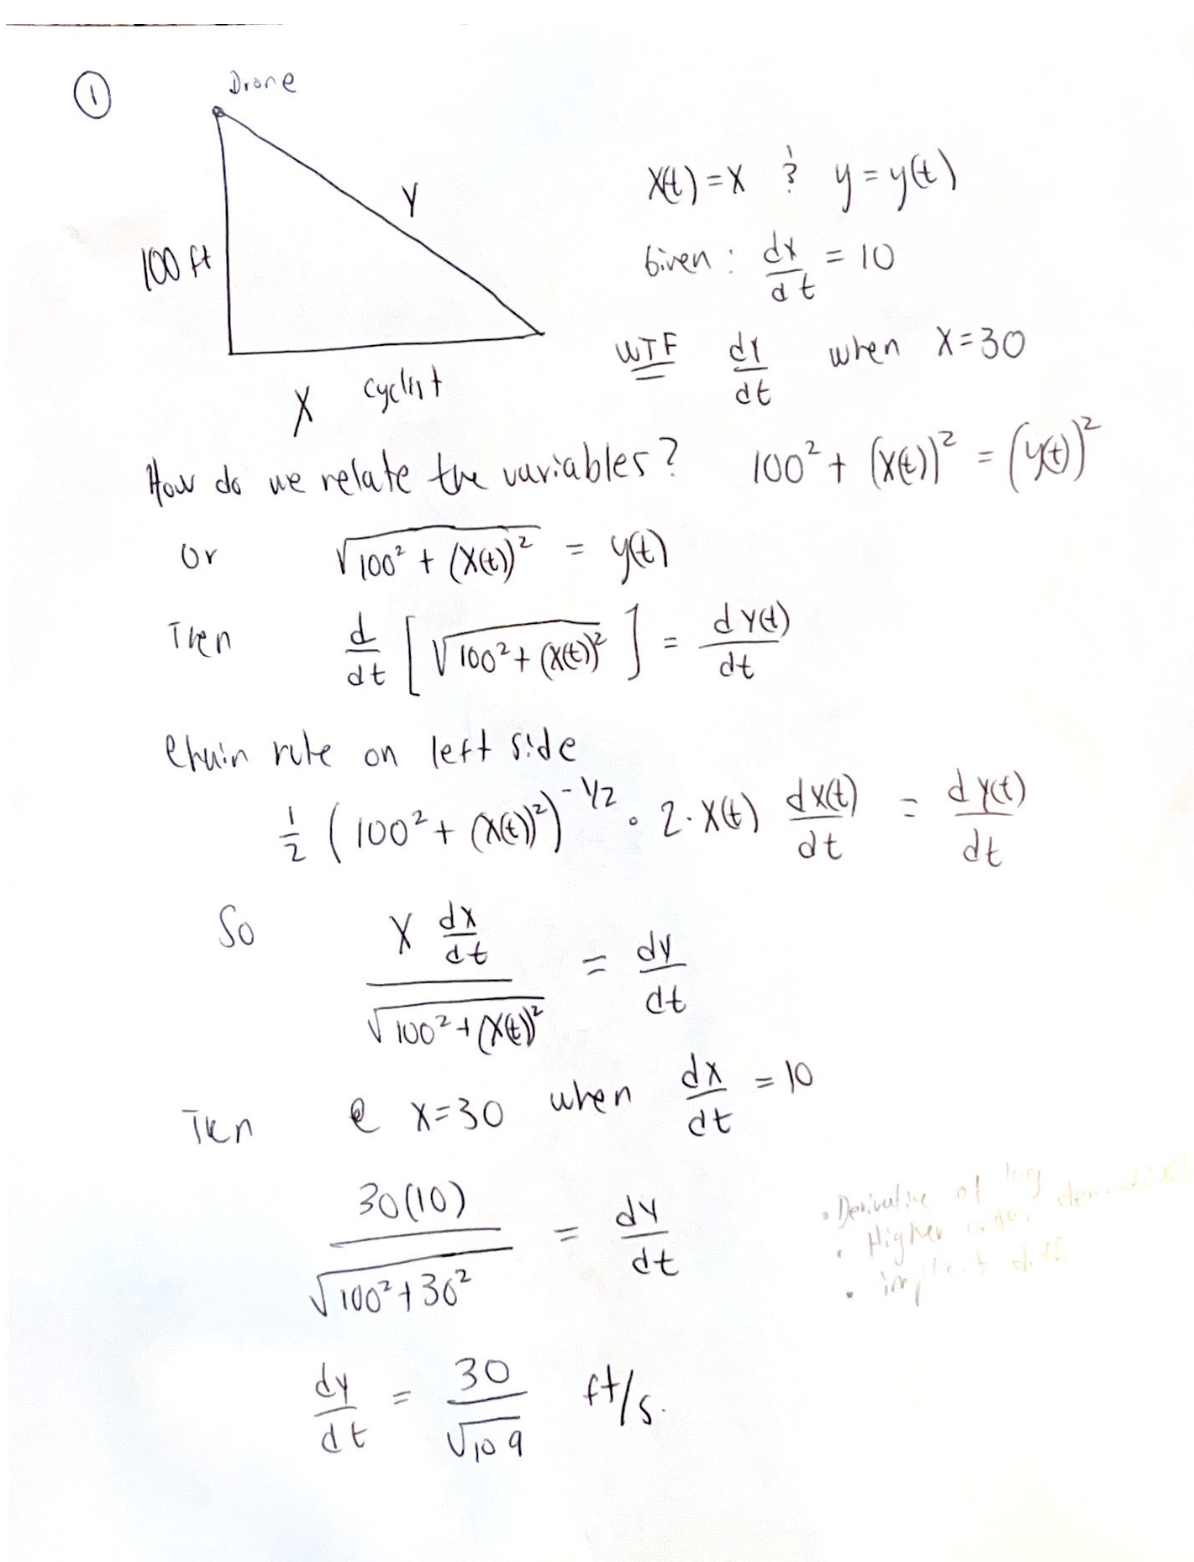 ①
Drone
Y
100 ft
X cyclist
X(t) = X & y = y(t)
Given: dx/dt = 10
WTF dy/dt when X=30
How do we relate the variables? 100² + (X(t))² = (y(t))²
Or √(100² + (X(t))²) = y(t)
Then d/dt [√(100² + (X(t))²)] = dY(t)/dt
Chain rule on left side
1/2 (100² + (X(t))²)^(-1/2) · 2·X(t) dX(t)/dt = dy(t)/dt
So X dx/dt / √(100² + (X(t))²) = dy/dt
Then @ X=30 when dx/dt = 10
30(10) / √(100² + 30²) = dy/dt
dy/dt = 30/√109 ft/s.
• Derivative of log
• Higher order
• implicit diff